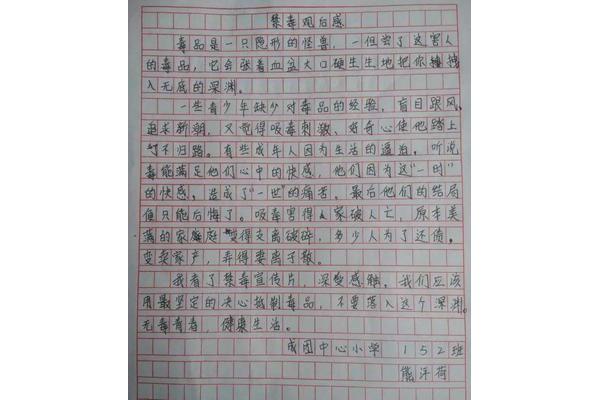 禁毒观后感
毒品是一只隐形的怪兽，一但尝了这害人
的毒品，它会张着血盆大口硬生生地把你拽
入无底的深渊。
一些青少年缺少对毒品的经验，盲目跟风，
追求新潮，又觉得吸毒刺激、好奇心使他踏上
不归路。有些成年人因为生活的逼迫，听说
毒能满足他们心中的快感，他们因为这“一时”
的快感，造成了“一世”的痛苦。最后他们的结局
但只能后悔了。吸毒害得人家破人亡，原本美
满的家庭变得支离破碎，多少人为了还债，
变卖家产，弄得妻离子散。
我看了禁毒宣传片，深受感触，我们应该
用最坚定的决心抵制毒品，不要落入这个深渊。
无毒青春，健康生活。
成团中心小学 152班
熊汗荷